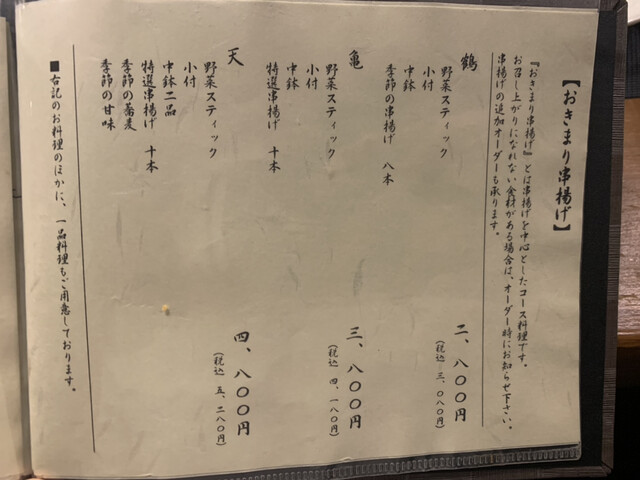 【おきまり串揚げ】
『おきまり串揚げ』とは串揚げを中心としたコース料理です。
お召し上がりになれない食材がある場合は、オーダー時にお知らせ下さい。
串揚げの追加オーダーも承ります。
鶴
二、八〇〇円
野菜スティック
(税込 三、〇八〇円)
小付
中鉢
季節の串揚げ 八本
亀
三、八〇〇円
野菜スティック
(税込 四、一八〇円)
小付
中鉢
特選串揚げ 十本
天
四、八〇〇円
野菜スティック
(税込 五、二八〇円)
小付
中鉢二品
特選串揚げ 十本
季節の蕎麦
季節の甘味
■右記のお料理のほかに、一品料理もご用意しております。